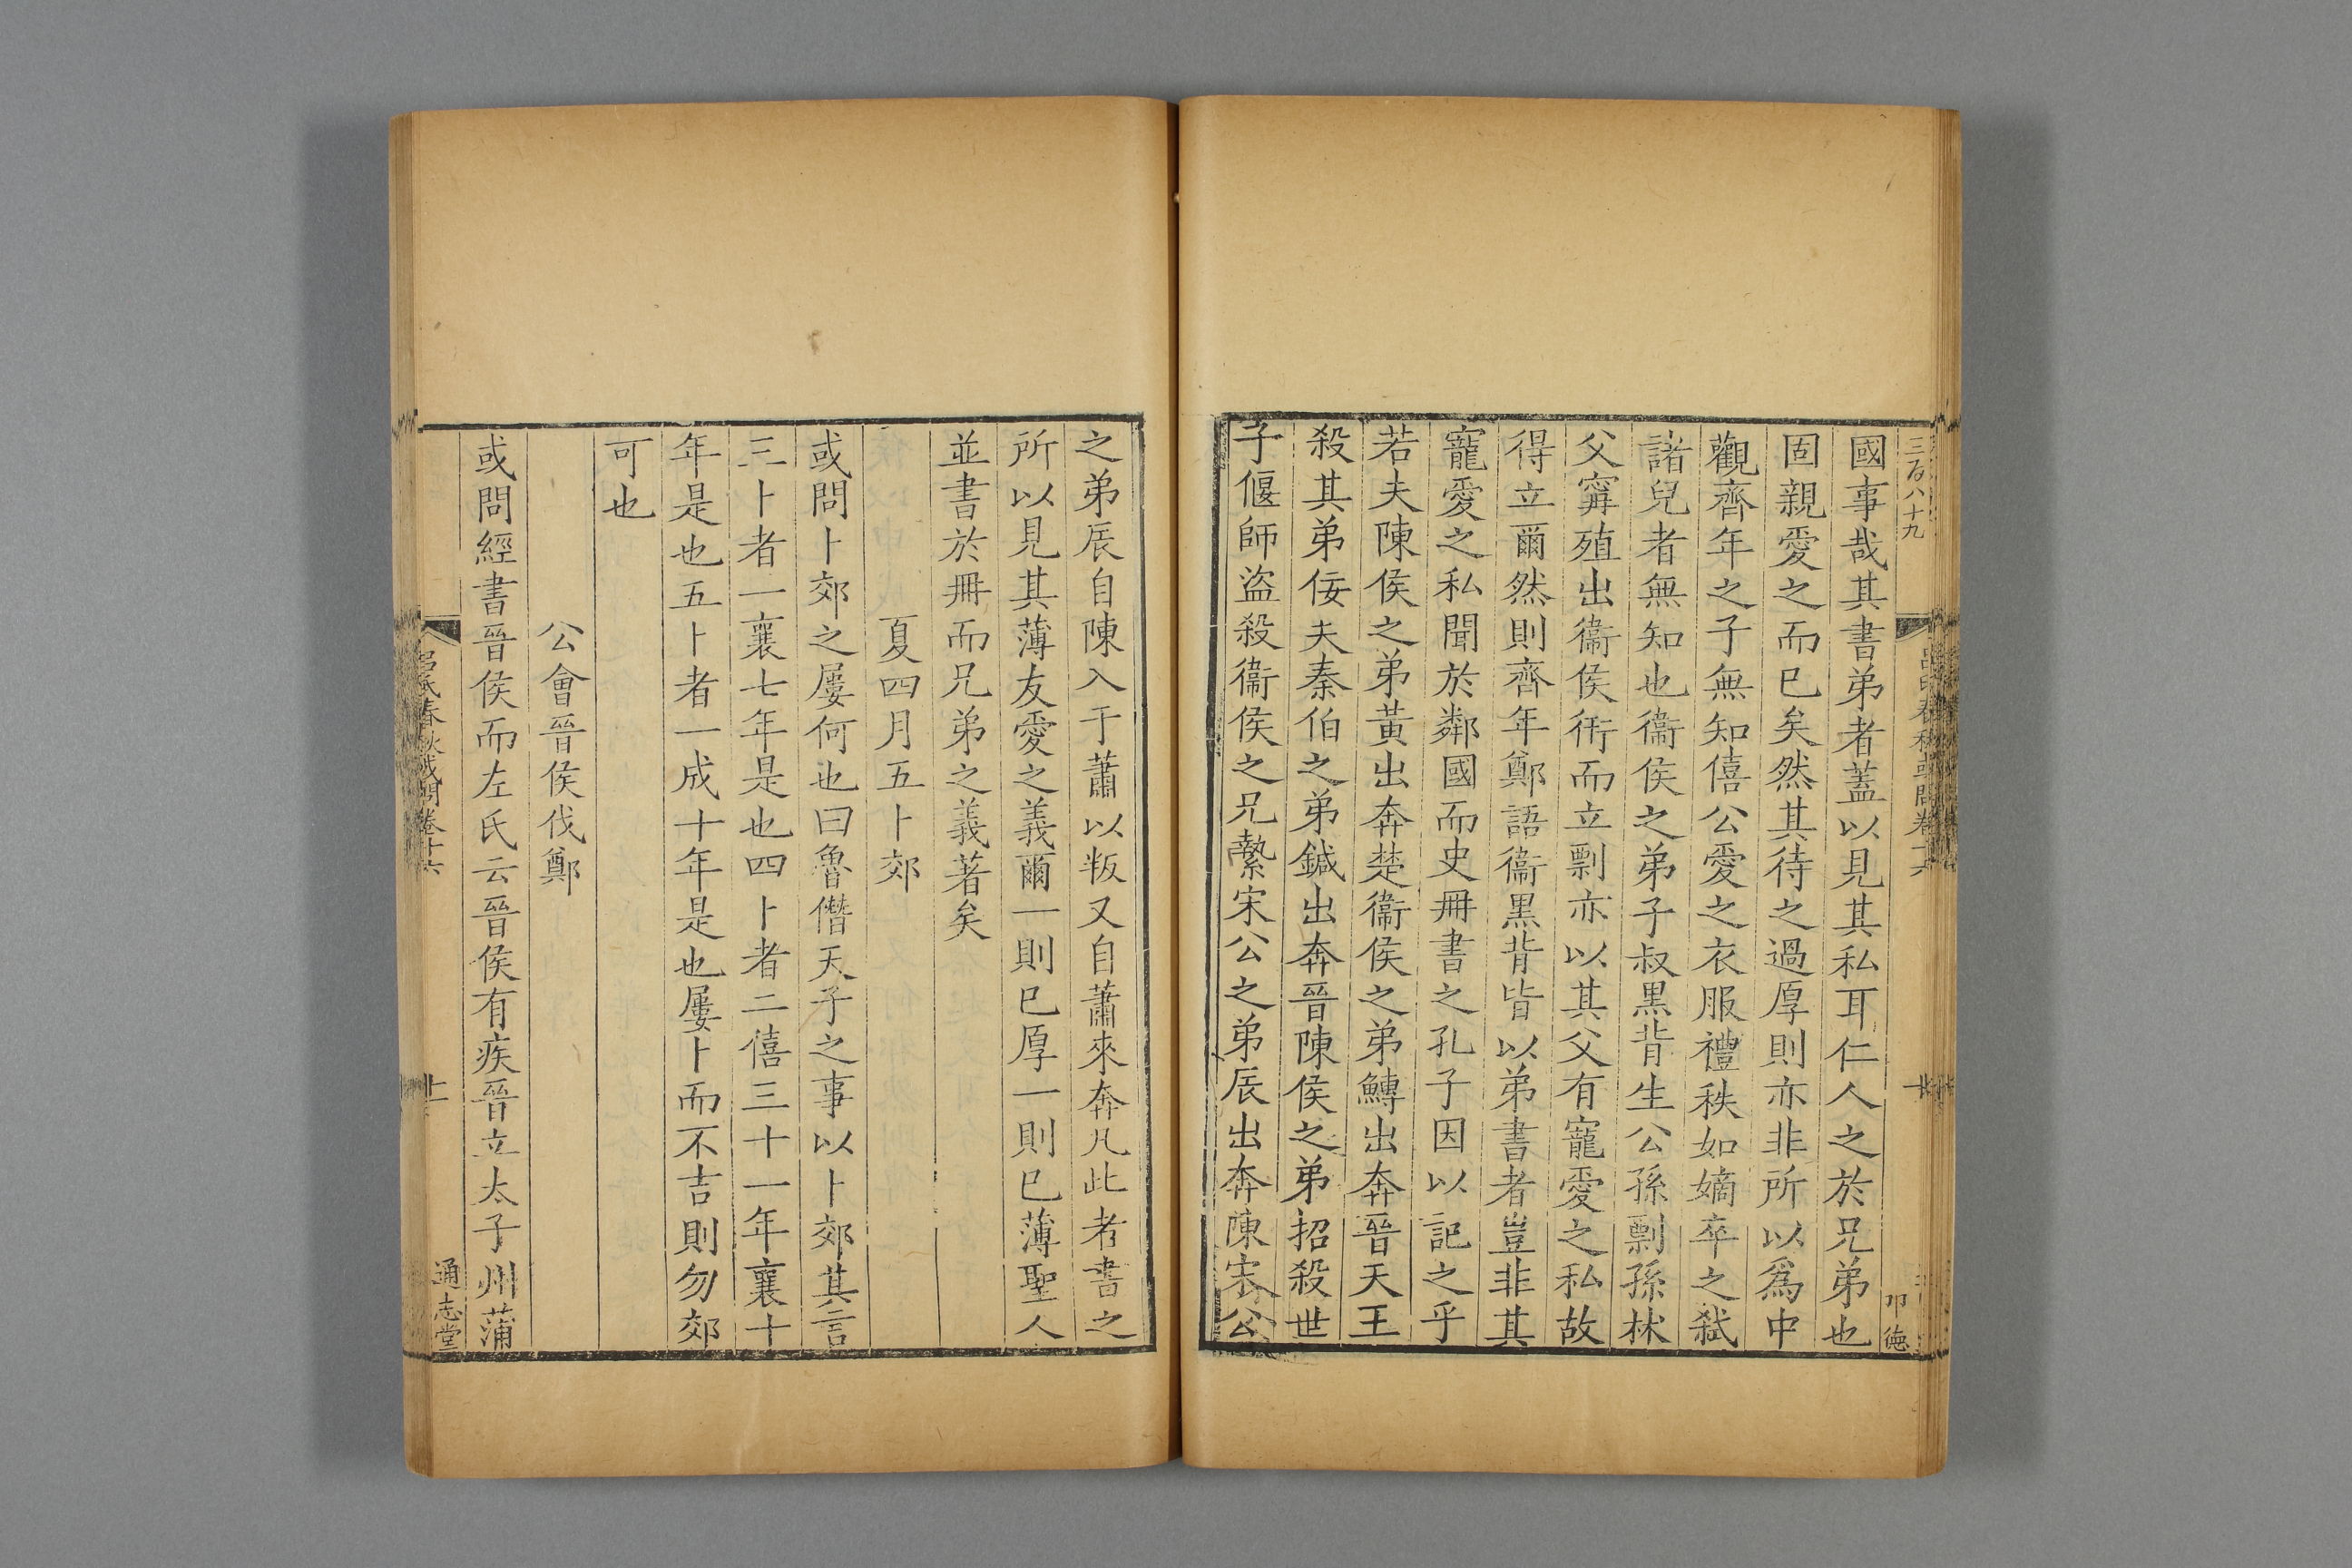 三百八十九
國事哉其書弟者蓋以見其私耳仁人之於兄弟也
固親愛之而已矣然其待之過厚則亦非所以爲中
觀齊年之子無知僖公愛之衣服禮秩如嫡卒之弑
諸兒者無知也衞侯之弟子叔黑背生公孫剽孫林
父甯殖出衞侯衎而立剽亦以其父有寵愛之私故
得立爾然則齊年鄭語衞黑背皆以弟書者豈非其
寵愛之私聞於鄰國而史冊書之孔子因以記之乎
若夫陳侯之弟黃出奔楚衞侯之弟鱄出奔晉天王
殺其弟佞夫秦伯之弟鍼出奔晉陳侯之弟招殺世
子偃師盜殺衞侯之兄縶宋公之弟辰出奔陳宋公
之弟辰自陳入于蕭以叛又自蕭來奔凡此者書之
所以見其薄友愛之義爾一則已厚一則已薄聖人
並書於冊而兄弟之義著矣
夏四月五卜郊
或問卜郊之屢何也曰魯僭天子之事以卜郊其言
三卜者一襄七年是也四卜者二僖三十一年襄十
年是也五卜者一成十年是也屢卜而不吉則勿郊
可也
公會晉侯伐鄭
或問經書晉侯而左氏云晉侯有疾晉立太子州蒲
呂氏春秋或問卷十六
通志堂